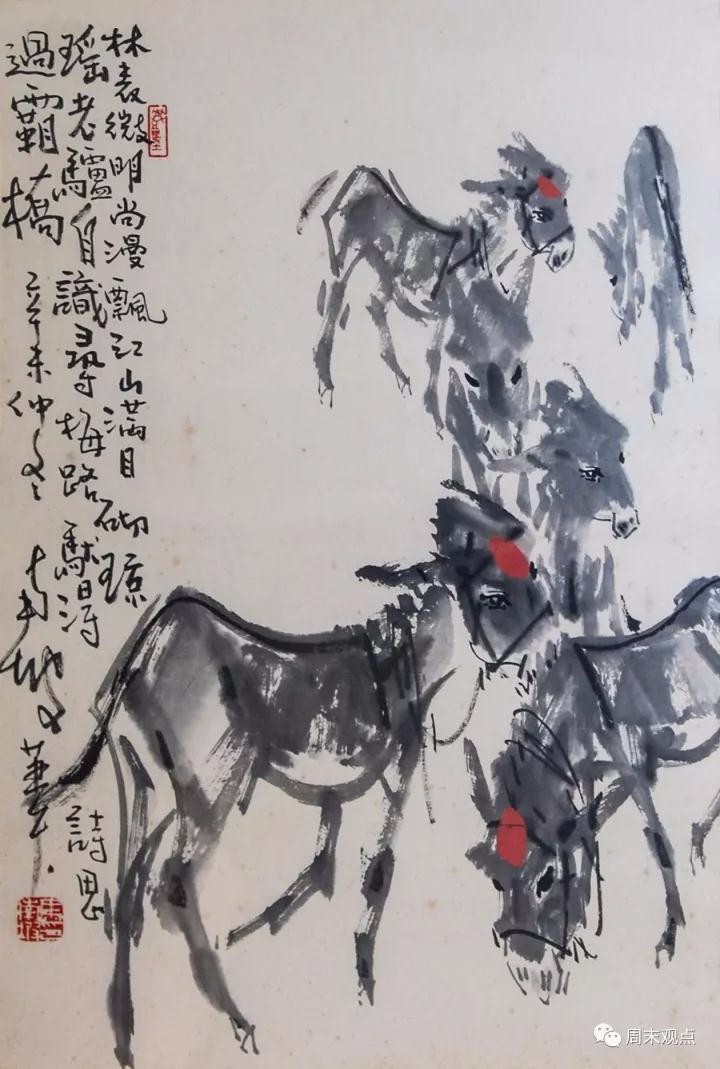 林表微明尚漫飄江山满目砌瓊
瑶老驢自識尋梅路馱得
詩思
過霸橋 辛未仲冬
周末观点